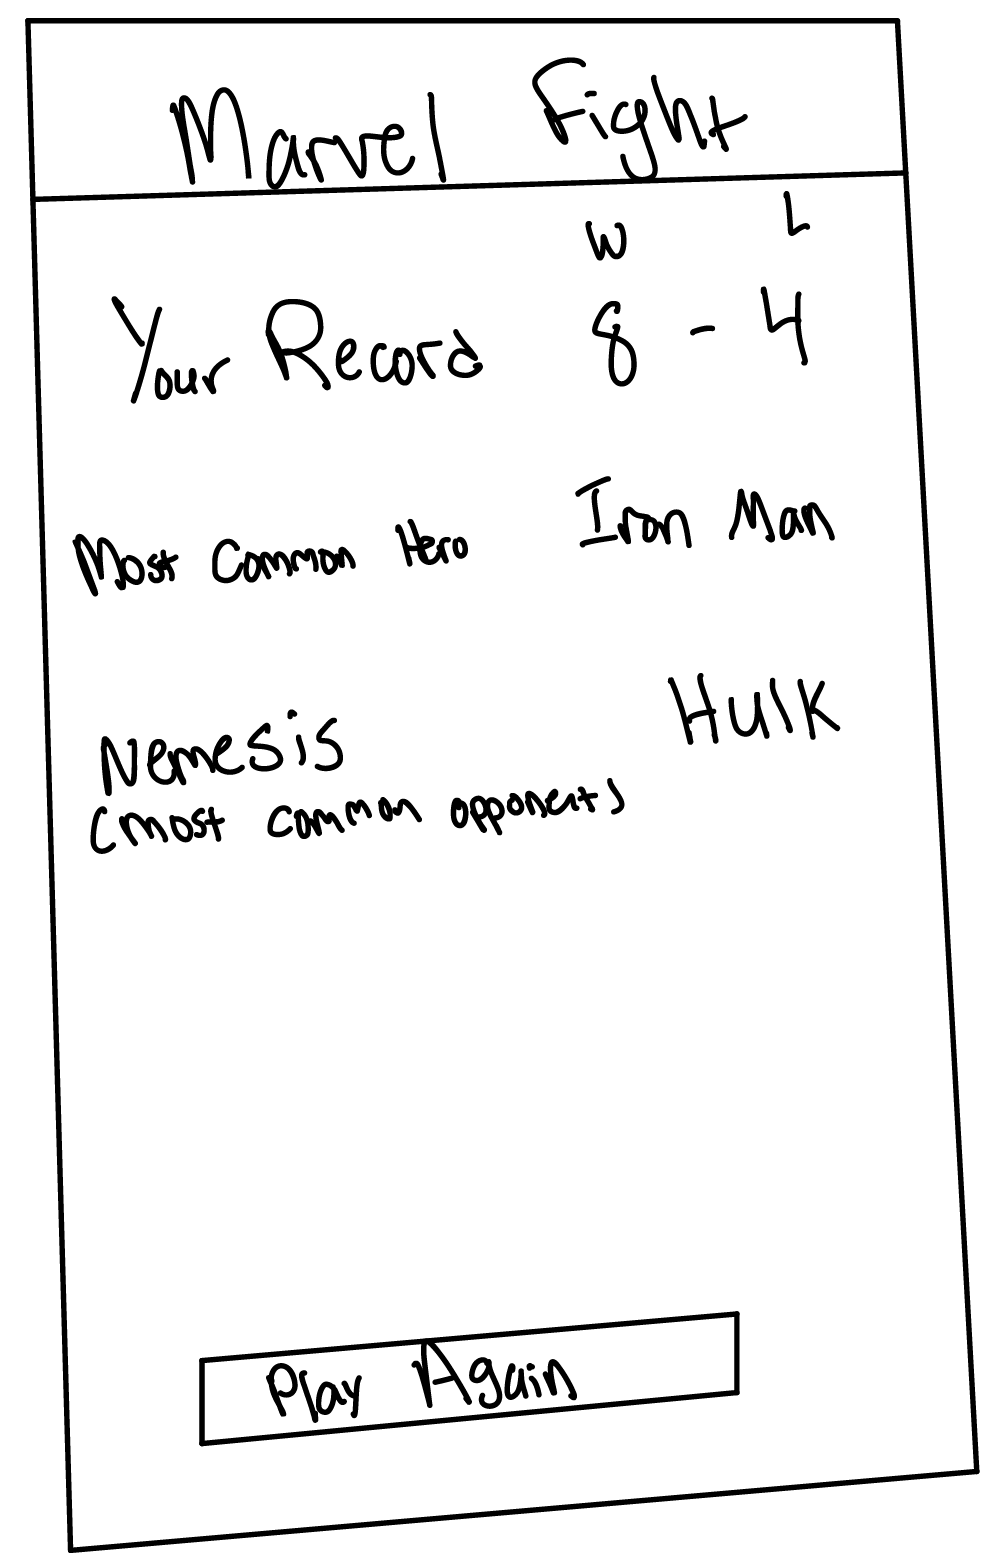 Marvel Fight
W L
Your Record 8 - 4
Most Common Hero Iron Man
Nemesis Hulk
(most common opponent)
Play Again